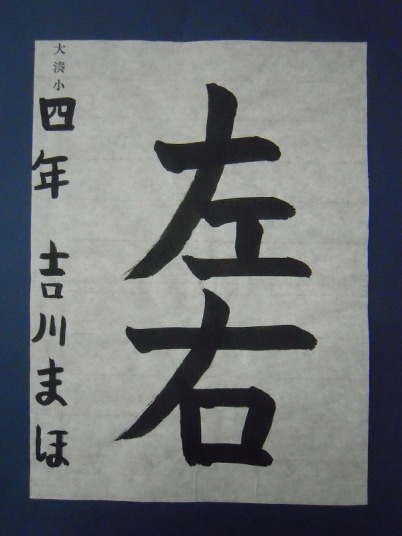 左右
大湊小
四年 吉川まほ